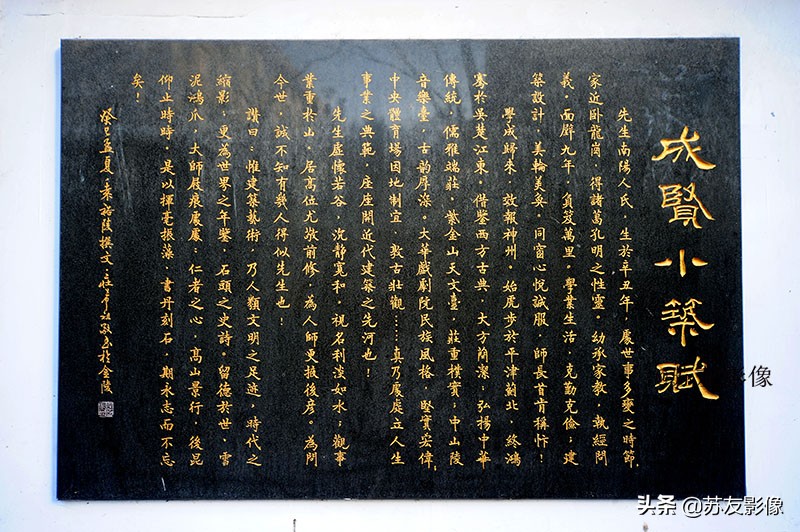 成賢小築賦
先生南陽人氏，生於辛丑年，處世事多變之時節，
家近卧龍崗，得諸葛孔明之性靈。幼承家教，執經問
義，面辟九年，負笈萬里。學業生活，克勤克儉；建
築設計，美輪美奂。同窗心悦誠服，師長首肯稱忭！
學成歸來，效報神州。始展步於平津薊北，終鴻
騫於吳楚江東。借鑒西方古典，大方簡潔；弘揚中華
傳統，儒雅端莊。紫金山天文臺，莊重樸實；中山陵
音樂臺，古韵厚深。大華戲劇院民族風格，堅實宏偉，
中央體育場因地制宜，敦古壯觀……真乃處處立人生
事業之典範，座座開近代建築之先河也！
先生虛懷若谷，沉静寬和。視名利淡如水；觀事
業重於山。居高位尤敬前修，為人師更掖後彦。為問
今世，誠不知有幾人得似先生也！
讚曰：惟建築藝術，乃人類文明之足迹，時代之
縮影，更為世界之年鑒，石頭之史詩。留德於世，雪
泥鴻爪，大師屐痕處處，仁者之心，高山景行，後昆
仰止時時。是以揮毫振藻，書丹刻石，期永志而不忘
矣！
癸巳孟夏，袁裕陵撰文，莊希祖敬書於金陵
影像
头条 @苏友影像